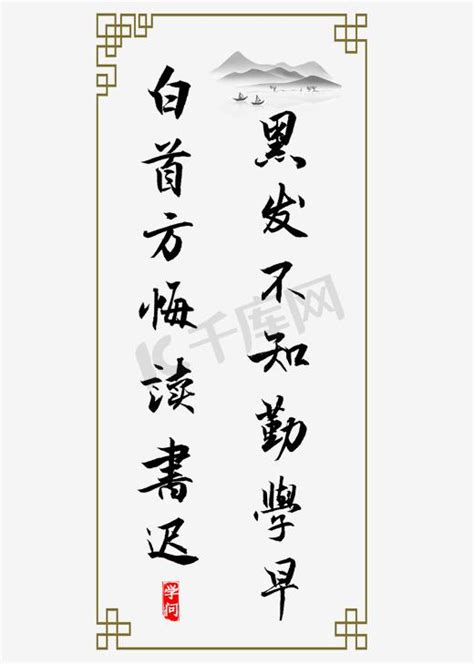 黑发不知勤學早
白首方悔读書迟
学问
千库网